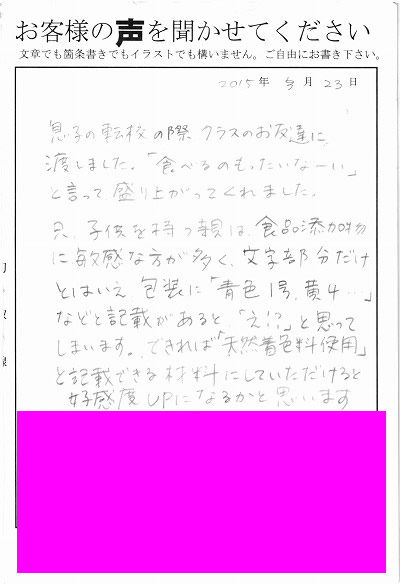 お客様の声を聞かせてください
文章でも箇条書きでもイラストでも構いません。ご自由にお書き下さい。
2015年 3月 23日
息子の転校の際 クラスのお友達に
渡しました。「食べるのもったいなーい」
と言って盛り上がってくれました。
只、子供を持つ親は、食品添加物
に敏感な方が多く、文字部分だけ
とはいえ 包装に「青色1号,黄4…」
などと記載があると、「え!?」と思って
しまいます。できれば「天然着色料使用」
と記載できる材料にしていただけると
好感度UPになるかと思います